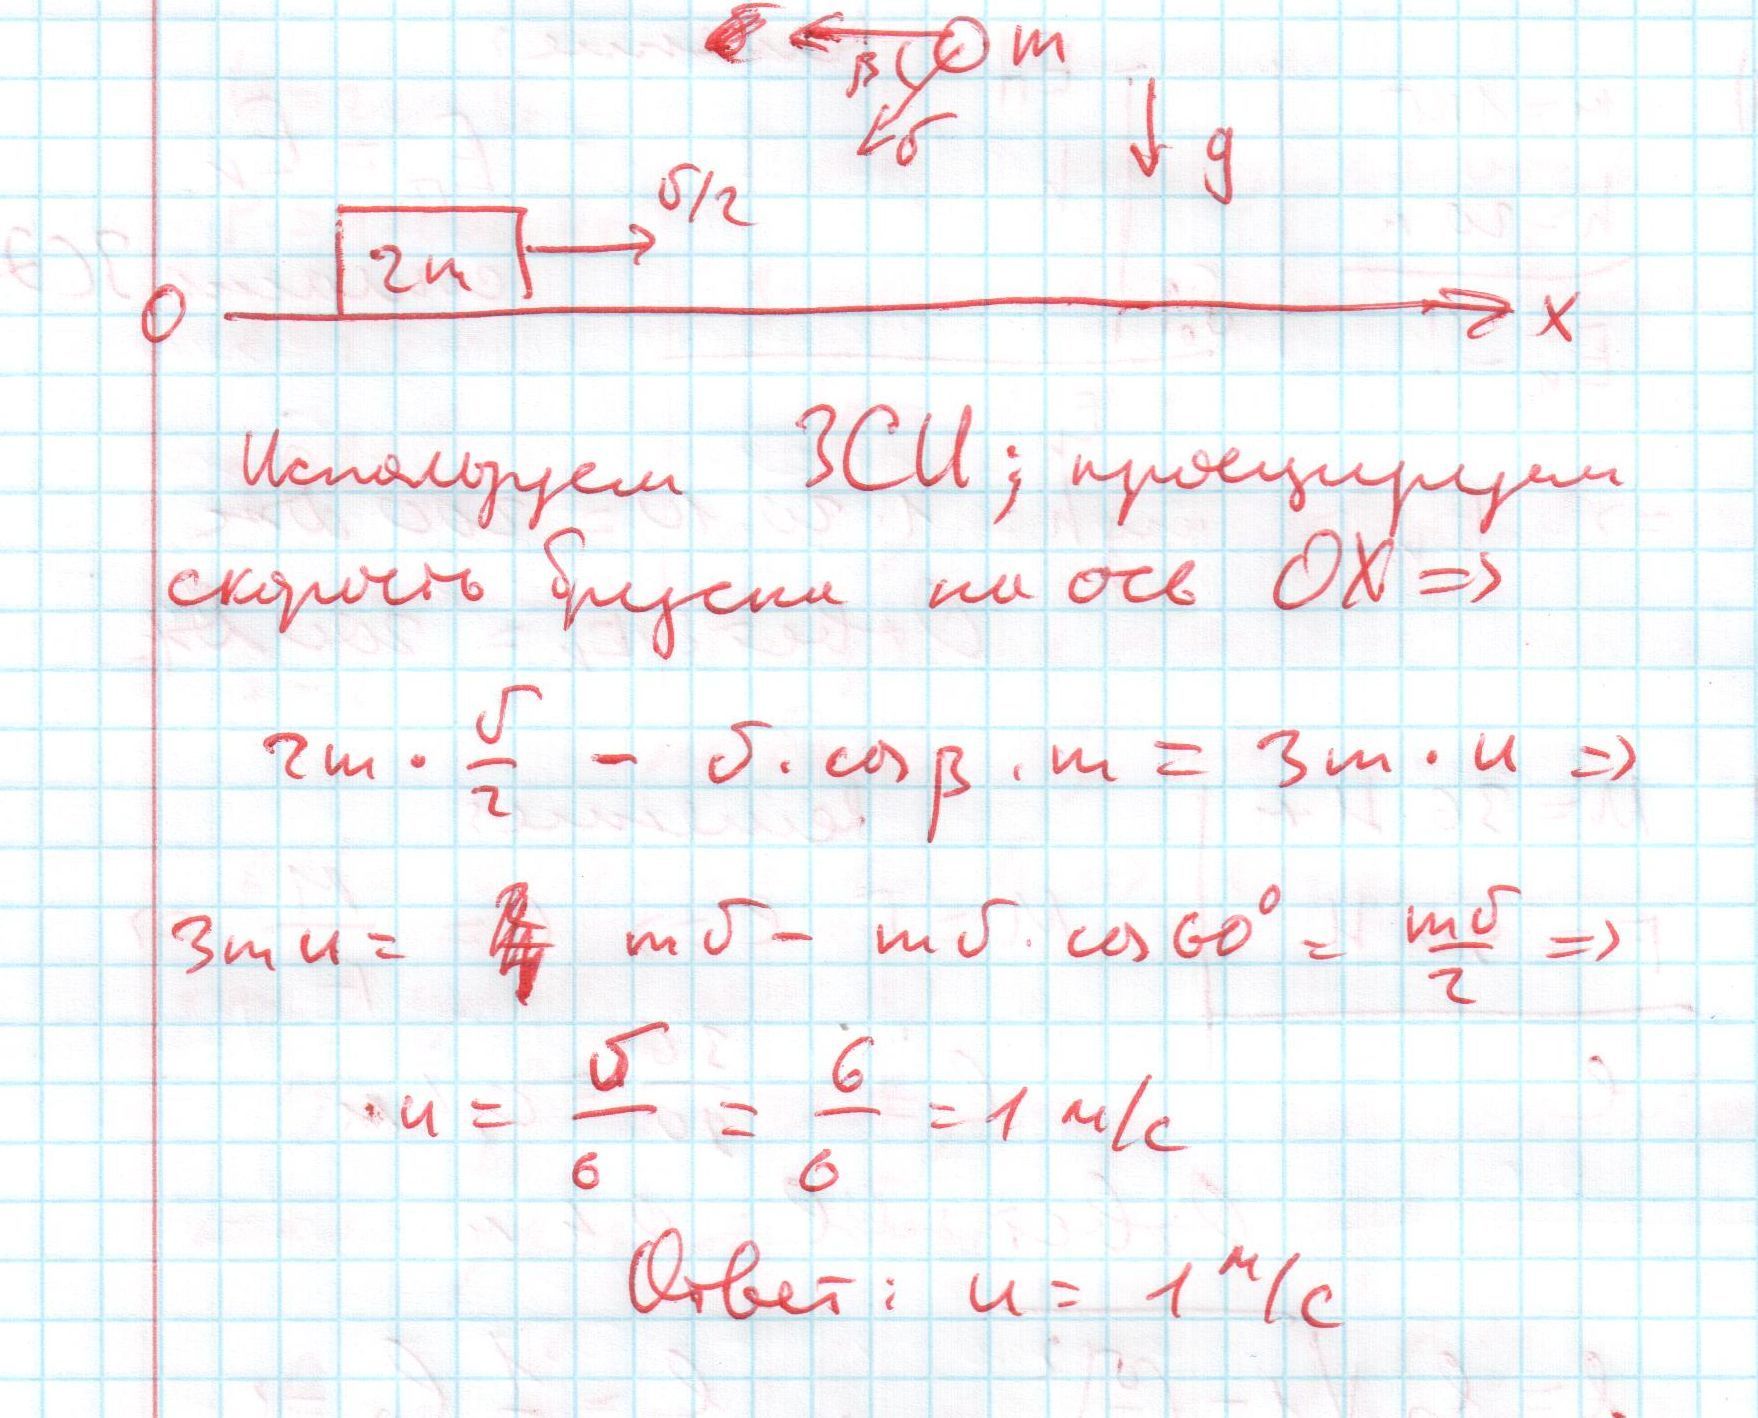 m
β
υ
g
υ/2
2m
0
x
Используем ЗСИ; проецируем
скорость бруска на ось OX =>
2m · υ/2 - υ · cosβ · m = 3m · u =>
3mu = mυ - mυ · cos60° = mυ/2 =>
u = υ/6 = 6/6 = 1 м/с
Ответ: u = 1 м/с